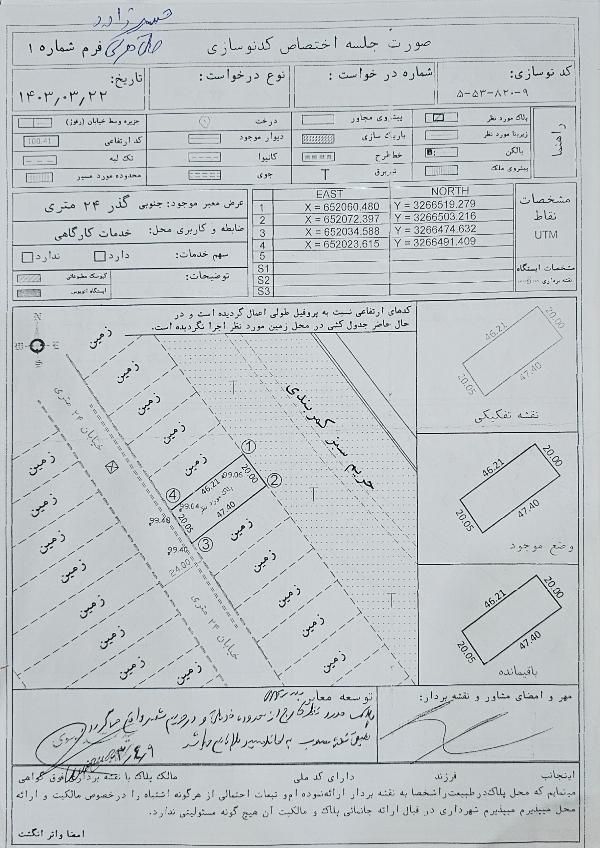 صورت جلسه اختصاص کدنوسازی
فرم شماره ۱
کد نوسازی:
۵-۵۳-۸۲۰-۹
شماره در خواست :
نوع درخواست:
تاریخ:
۱۴۰۳٫۰۳٫۲۲
راهنما
پلاک مورد نظر
زیربنا مورد نظر
بالکن
پیشروی ملک
پیشروی مجاور
باریک سازی
خط طرح
تیربرق
درخت
دیوار موجود
کانیوا
جوی
جزیره وسط خیابان (رفوژ)
کد ارتفاعی
100.41
تک لبه
محدوده مورد مسیر
مشخصات
نقاط
UTM
مشخصات ایستگاه
نقشه برداری
EAST NORTH
1 X = 652060.480 Y = 3266519.279
2 X = 652072.397 Y = 3266503.216
3 X = 652034.588 Y = 3266474.632
4 X = 652023.615 Y = 3266491.409
5
S1
S2
S3
عرض معبر موجود: جنوبی گذر ۲۴ متری
ضابطه و کاربری محل: خدمات کارگاهی
سهم خدمات: دارد ندارد
توضیحات:
کیوسک مطبوعاتی
ایستگاه اتوبوس
کدهای ارتفاعی نسبت به پروفیل طولی اعمال گردیده است و در
حال حاضر جدول کشی در محل زمین مورد نظر اجرا نگردیده است.
N
زمین
زمین
زمین
زمین
زمین
زمین
زمین
زمین
زمین
زمین
زمین
زمین
زمین
زمین
زمین
زمین
خیابان ۲۴ متری
خیابان ۲۴ متری
حریم سبز کمربندی
1
2
3
4
46.21
20.00
47.40
20.05
پلاک مورد نظر
99.06
99.04
99.40
99.40
24.00
46.21
20.00
20.05
47.40
نقشه تفکیکی
46.21
20.00
20.05
47.40
وضع موجود
46.21
20.00
20.05
47.40
باقیمانده
توسعه معابر
مهر و امضای مشاور و نقشه بردار:
اینجانب فرزند دارای کد ملی مالک پلاک با نقشه برداری فوق گواهی
مینمایم که محل پلاک درطبیعت راشخصا به نقشه بردار ارائه‌نموده ام‌و تبعات احتمالی از هرگونه اشتباه را درخصوص مالکیت و ارائه
محل میپذیرم میپذیرم شهرداری در قبال ارائه جانمائی پلاک و مالکیت آن هیچ گونه مسئولیتی ندارد.
امضا واثر انگشت